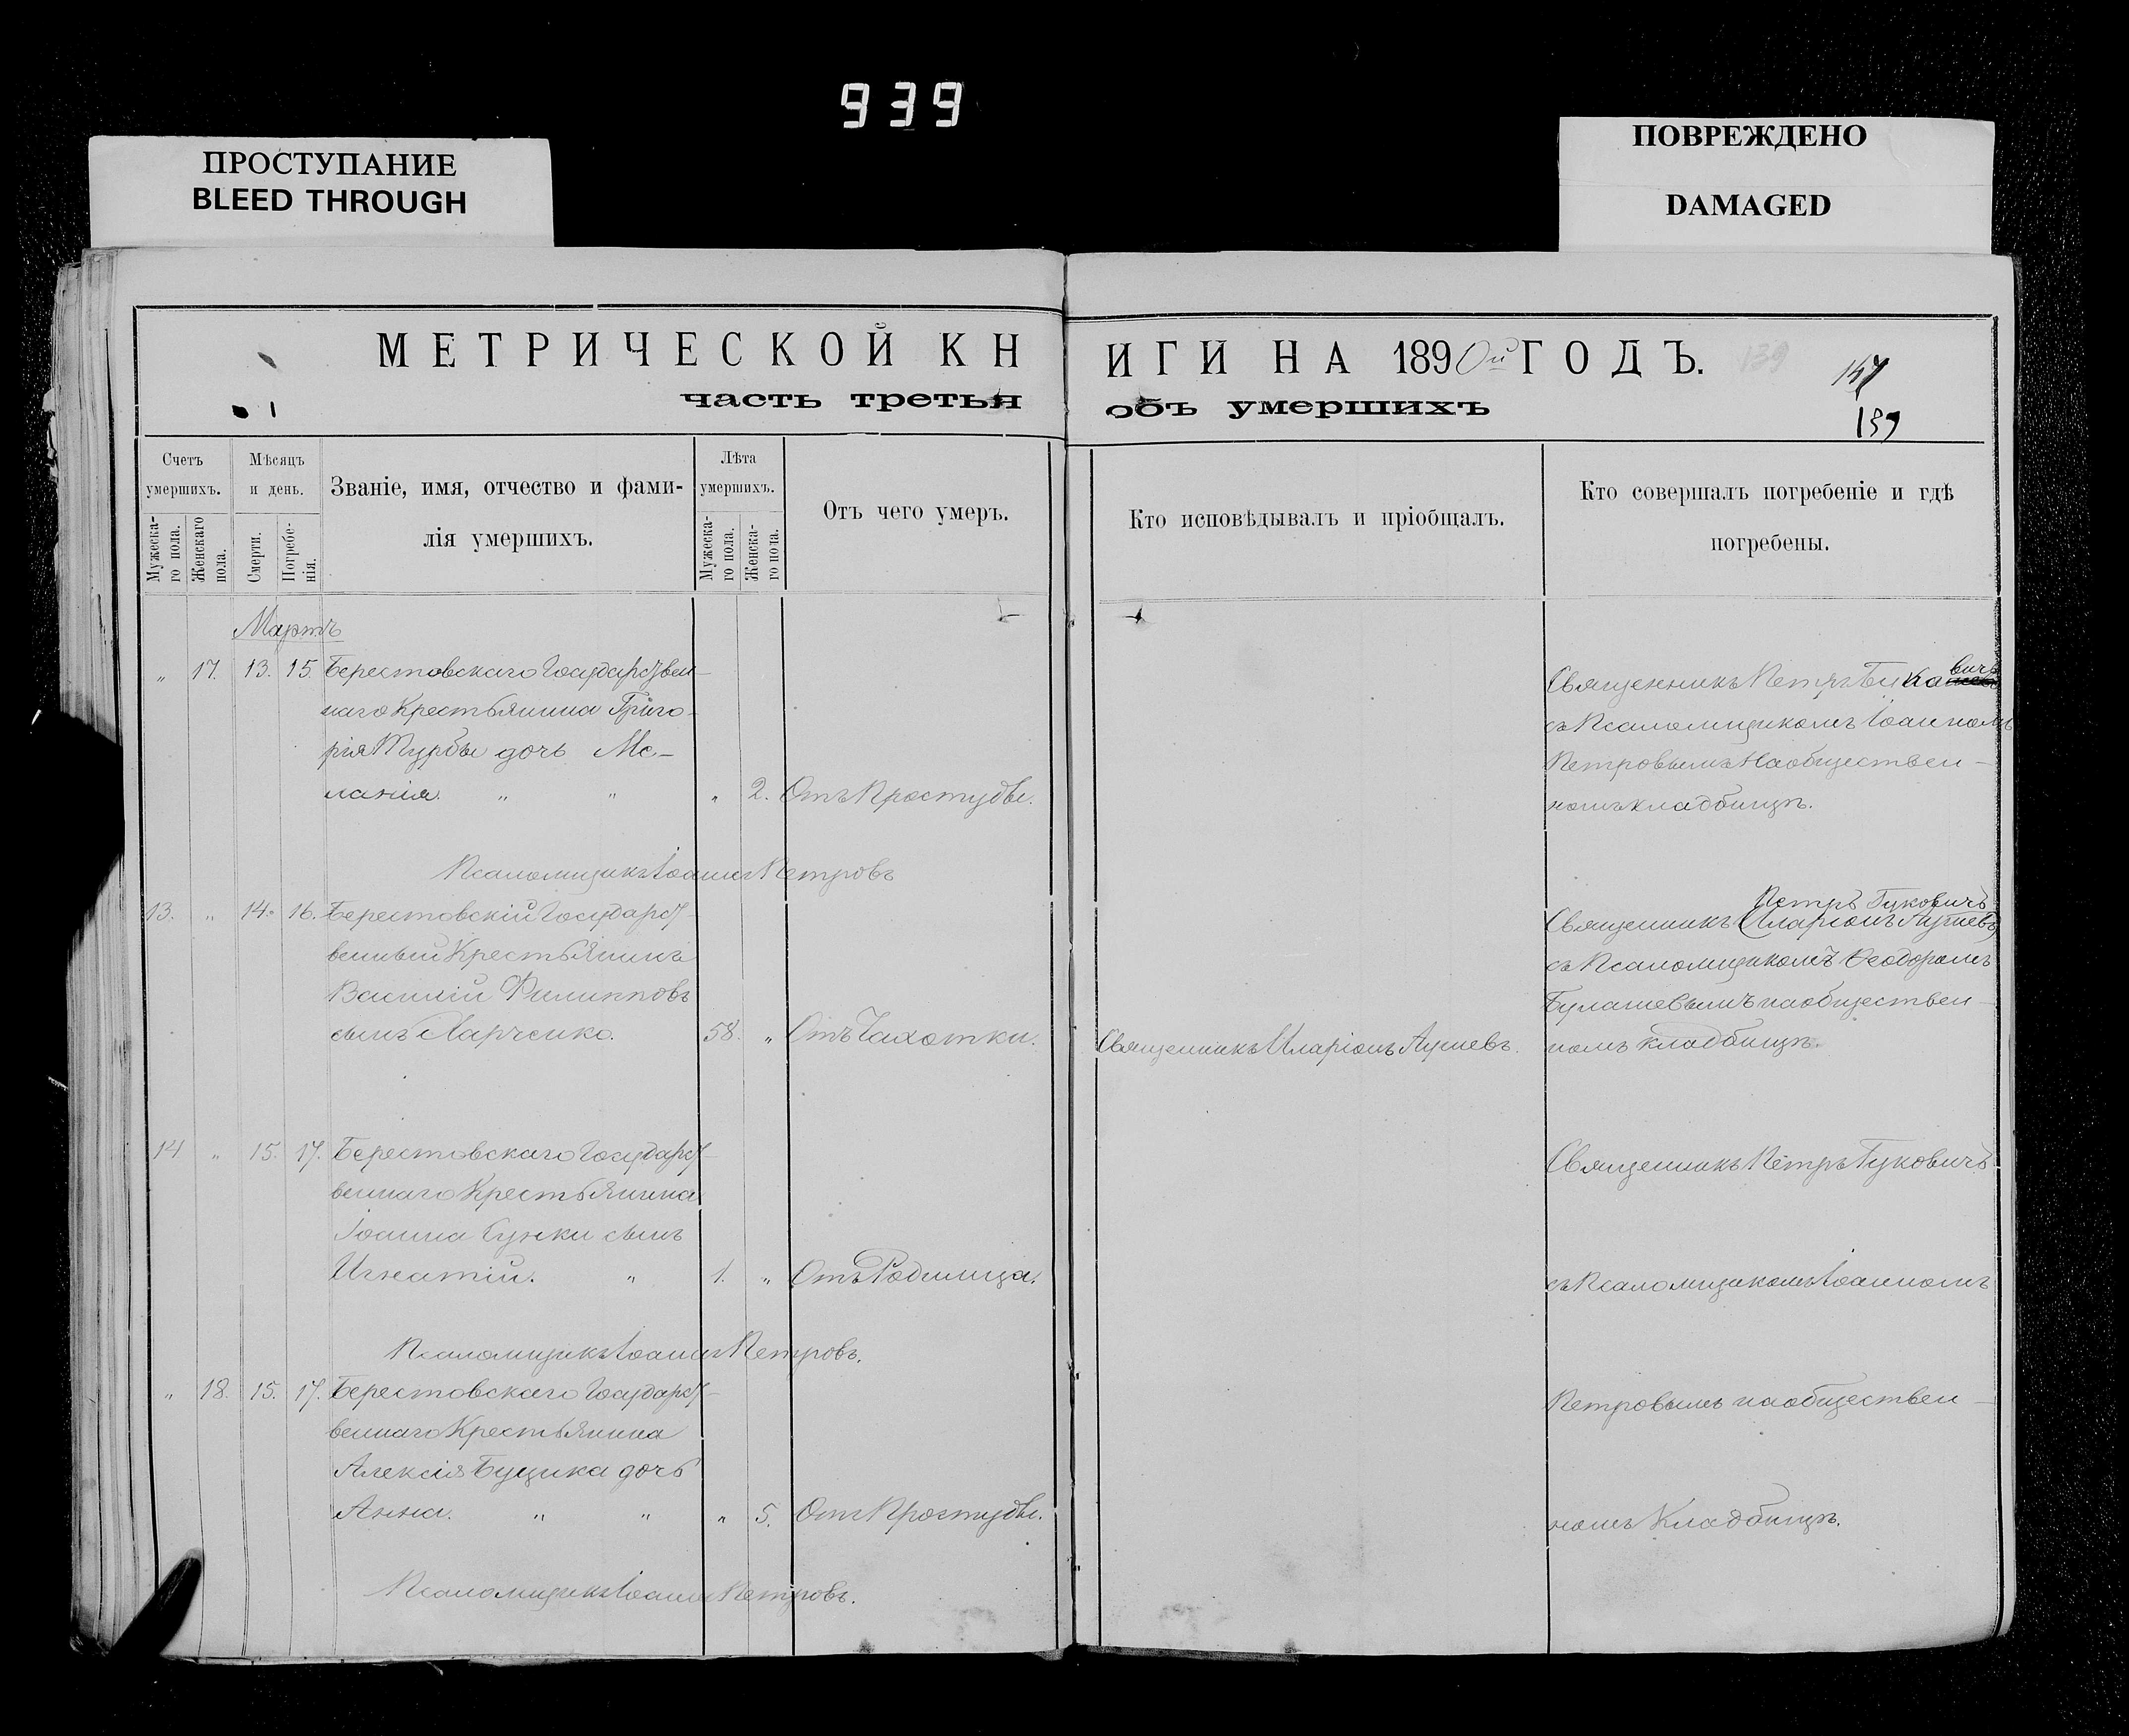 939
ПРОСТУПАНИЕ
BLEED THROUGH
ПОВРЕЖДЕНО
DAMAGED
МЕТРИЧЕСКОЙ КНИГИ НА 1890й ГОДЪ.
139
147
139
часть третья объ умершихъ
Счетъ умершихъ.
Мѣсяцъ и день.
Званіе, имя, отчество и фами-
лія умершихъ.
Лѣта умершихъ.
Отъ чего умеръ.
Кто исповѣдывалъ и пріобщалъ.
Кто совершалъ погребеніе и гдѣ
погребены.
Мужеска-
го пола.
Женскаго
пола.
Смерти.
Погребе-
нія.
Мужеска-
го пола.
Женска-
го пола.
Мартъ
" 17. 13. 15. Берестовскаго Государствен-
наго Крестьянина Григо-
рія Турбы дочь Ме-
ланія. " " " 2. Отъ Простуды.
Священникъ Петръ
съ Псаломщикомъ Іоанномъ
Петровымъ На обществен-
номъ кладбищѣ.
Псаломщикъ Іоаннъ Петровъ
13. " 14. 16. Берестовскій Государст-
венный Крестьянинъ
Василій Филипповъ
сынъ Марченко. 58. " Отъ Чахотки.
Священникъ Иларіонъ
Петръ Гуковичъ
Священникъ (Иларіонъ
съ Псаломщикомъ Ѳеодоромъ
на обществен-
номъ кладбищѣ.
14 " 15. 17. Берестовскаго Государст-
веннаго Крестьянина
Іоанна сынъ
Игнатій. " 1. " Отъ Родимца.
Священникъ Петръ Гуковичъ
съ Псаломщикомъ Іоанномъ
Псаломщикъ Іоаннъ Петровъ.
" 18. 15. 17. Берестовскаго Государст-
веннаго Крестьянина
Алексія Буцика дочь
Анна. " " " 5. Отъ Простуды.
Петровымъ на обществен-
номъ Кладбищѣ.
Псаломщикъ Іоаннъ Петровъ.